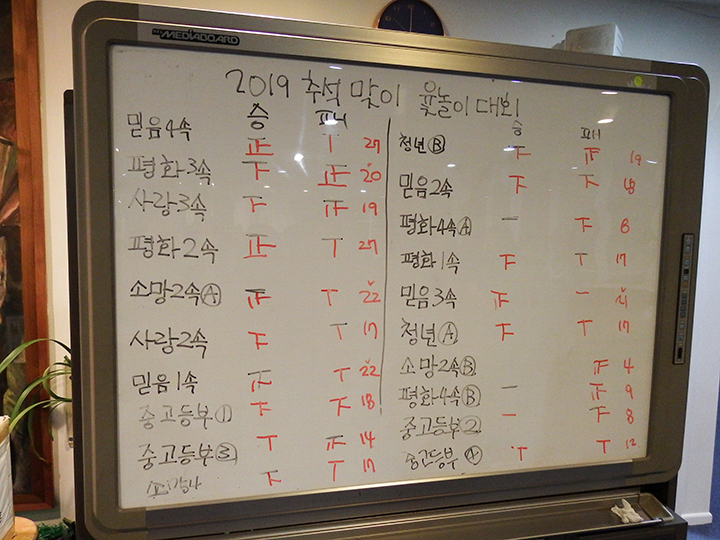 MEDIABOARD
2019 추석 맞이 윷놀이 대회
승 패
믿음4속 正 丅 27
평화3속 下 正 20
사랑3속 下 正 19
평화2속 正 丅 27
소망2속Ⓐ 正 丅 22
사랑2속 下 丅 17
믿음1속 正 丅 22
중고등부① 下 下 18
중고등부③ 丅 正 14
下 丅 17
승 패
청년Ⓑ 下 正 19
믿음2속 下 下 18
평화4속Ⓐ 一 下 8
평화1속 下 丅 17
믿음3속 正 一
청년Ⓐ 下 丅 17
소망2속Ⓑ 正 4
평화4속Ⓑ 一 正 9
중고등부② 一 下 8
중고등부 丅 丅 12